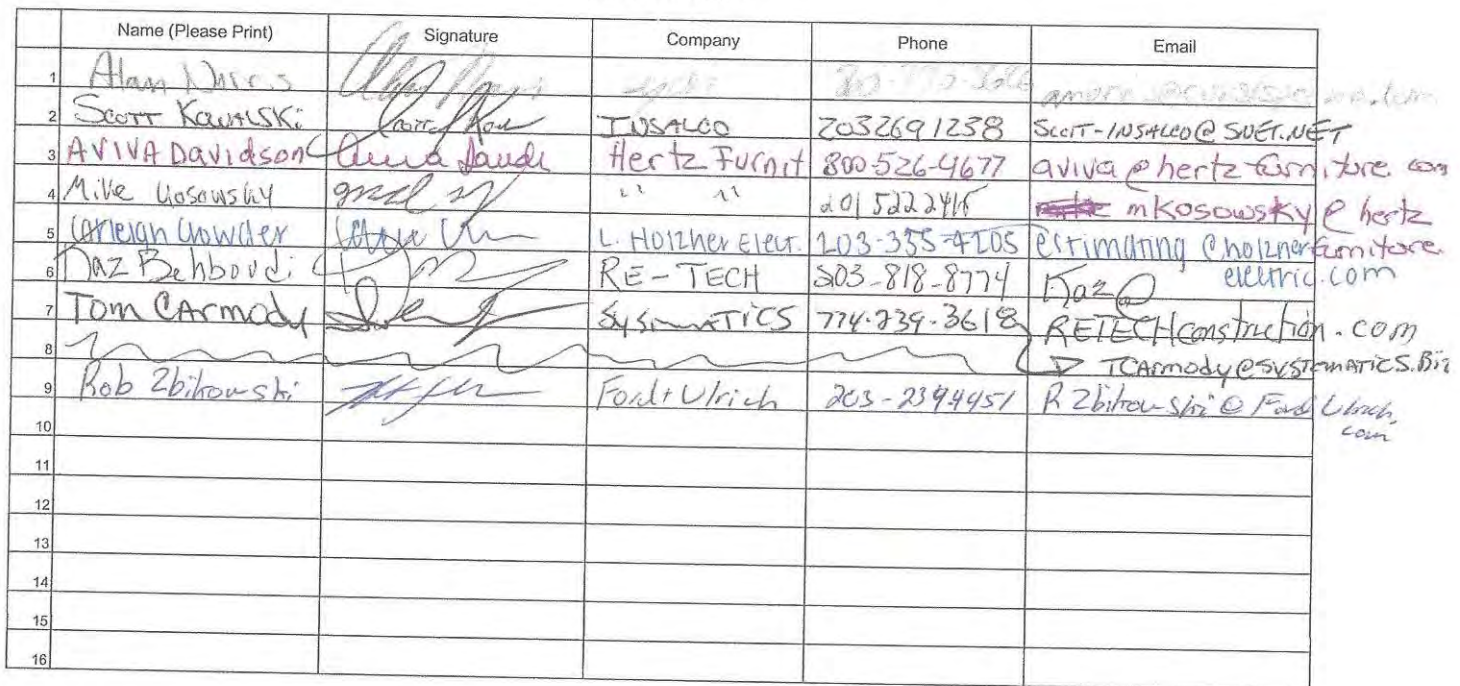 Name (Please Print) Signature Company Phone Email
1 Alan
2 Scott Kowalski INSALCO 2032691238 SCOTT-INSALCO@SNET.NET
3 AVIVA Davidson Hertz Furnit 800-526-4677 aviva@hertzfurniture.com
4 Mike Kosowsky " " 201 5222416 mkosowsky@hertz
furniture.
5 Carleigh Crowder L. Holzner Elect. 203-335-4205 estimating@holzner
electric.com
6 Faz Behboudi RE-TECH 203-818-8774 Faz@
RETECHconstruction.com
7 Tom CArmody 774-239-3618
TCArmody@SYSTEMATICS.Biz
8
9 Rob Zbikowski Ford + Ulrich 203-2394451 RZbikowski@FordUlrich.
com
10
11
12
13
14
15
16